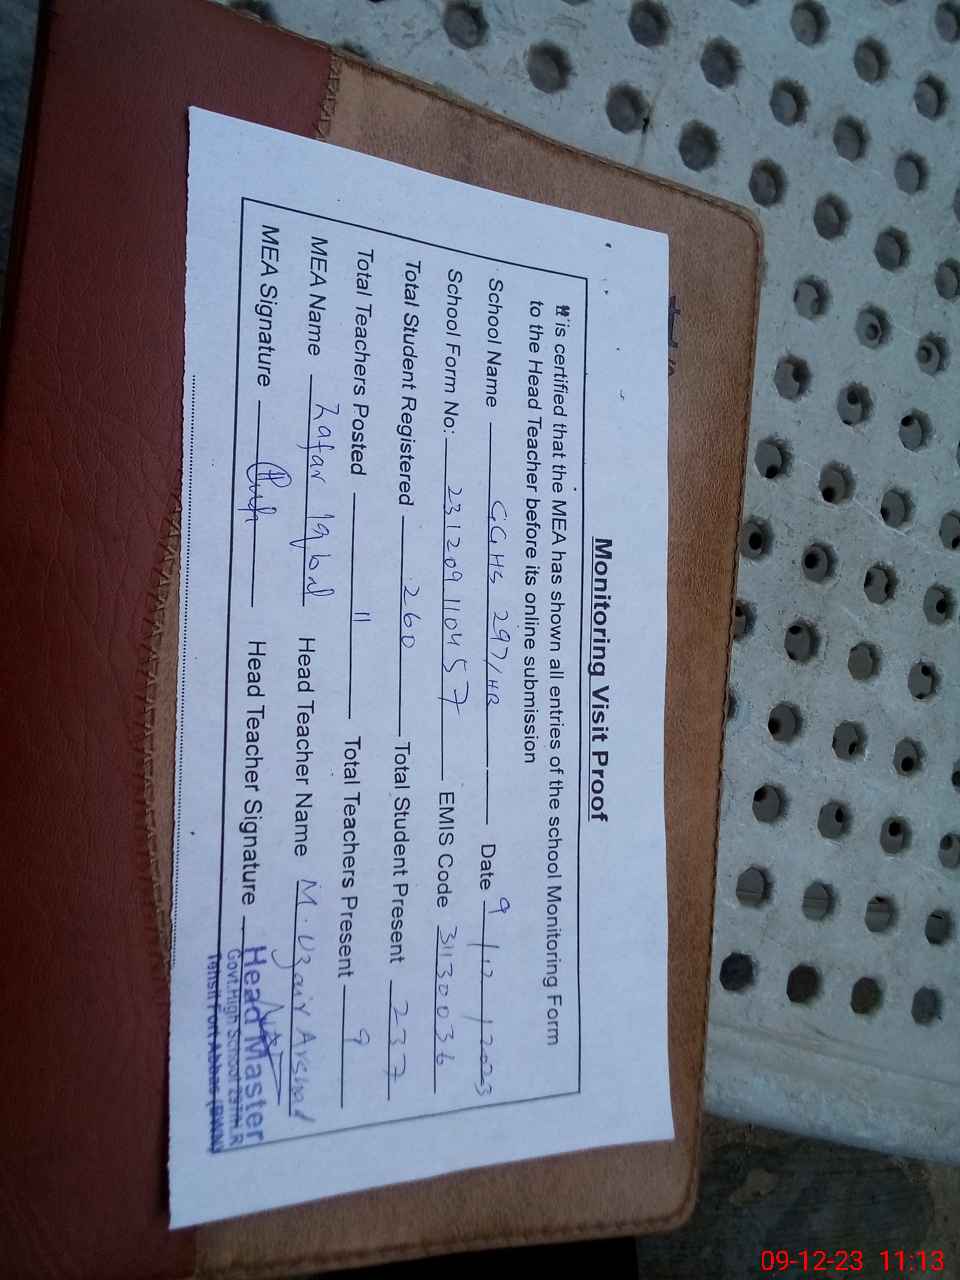 Monitoring Visit Proof
It is certified that the MEA has shown all entries of the school Monitoring Form
to the Head Teacher before its online submission
School Name GGHS 297/HR Date 9/12/2023
School Form No: 23120911045 7 EMIS Code 31130036
Total Student Registered 260 Total Student Present 237
Total Teachers Posted 11 Total Teachers Present 9
MEA Name Zafar Iqbal Head Teacher Name M. Uzair Arshad
MEA Signature Head Teacher Signature
Head Master
Govt.High School 297/H.R
Tehsil Fort Abbas (BWN)
09-12-23 11:13